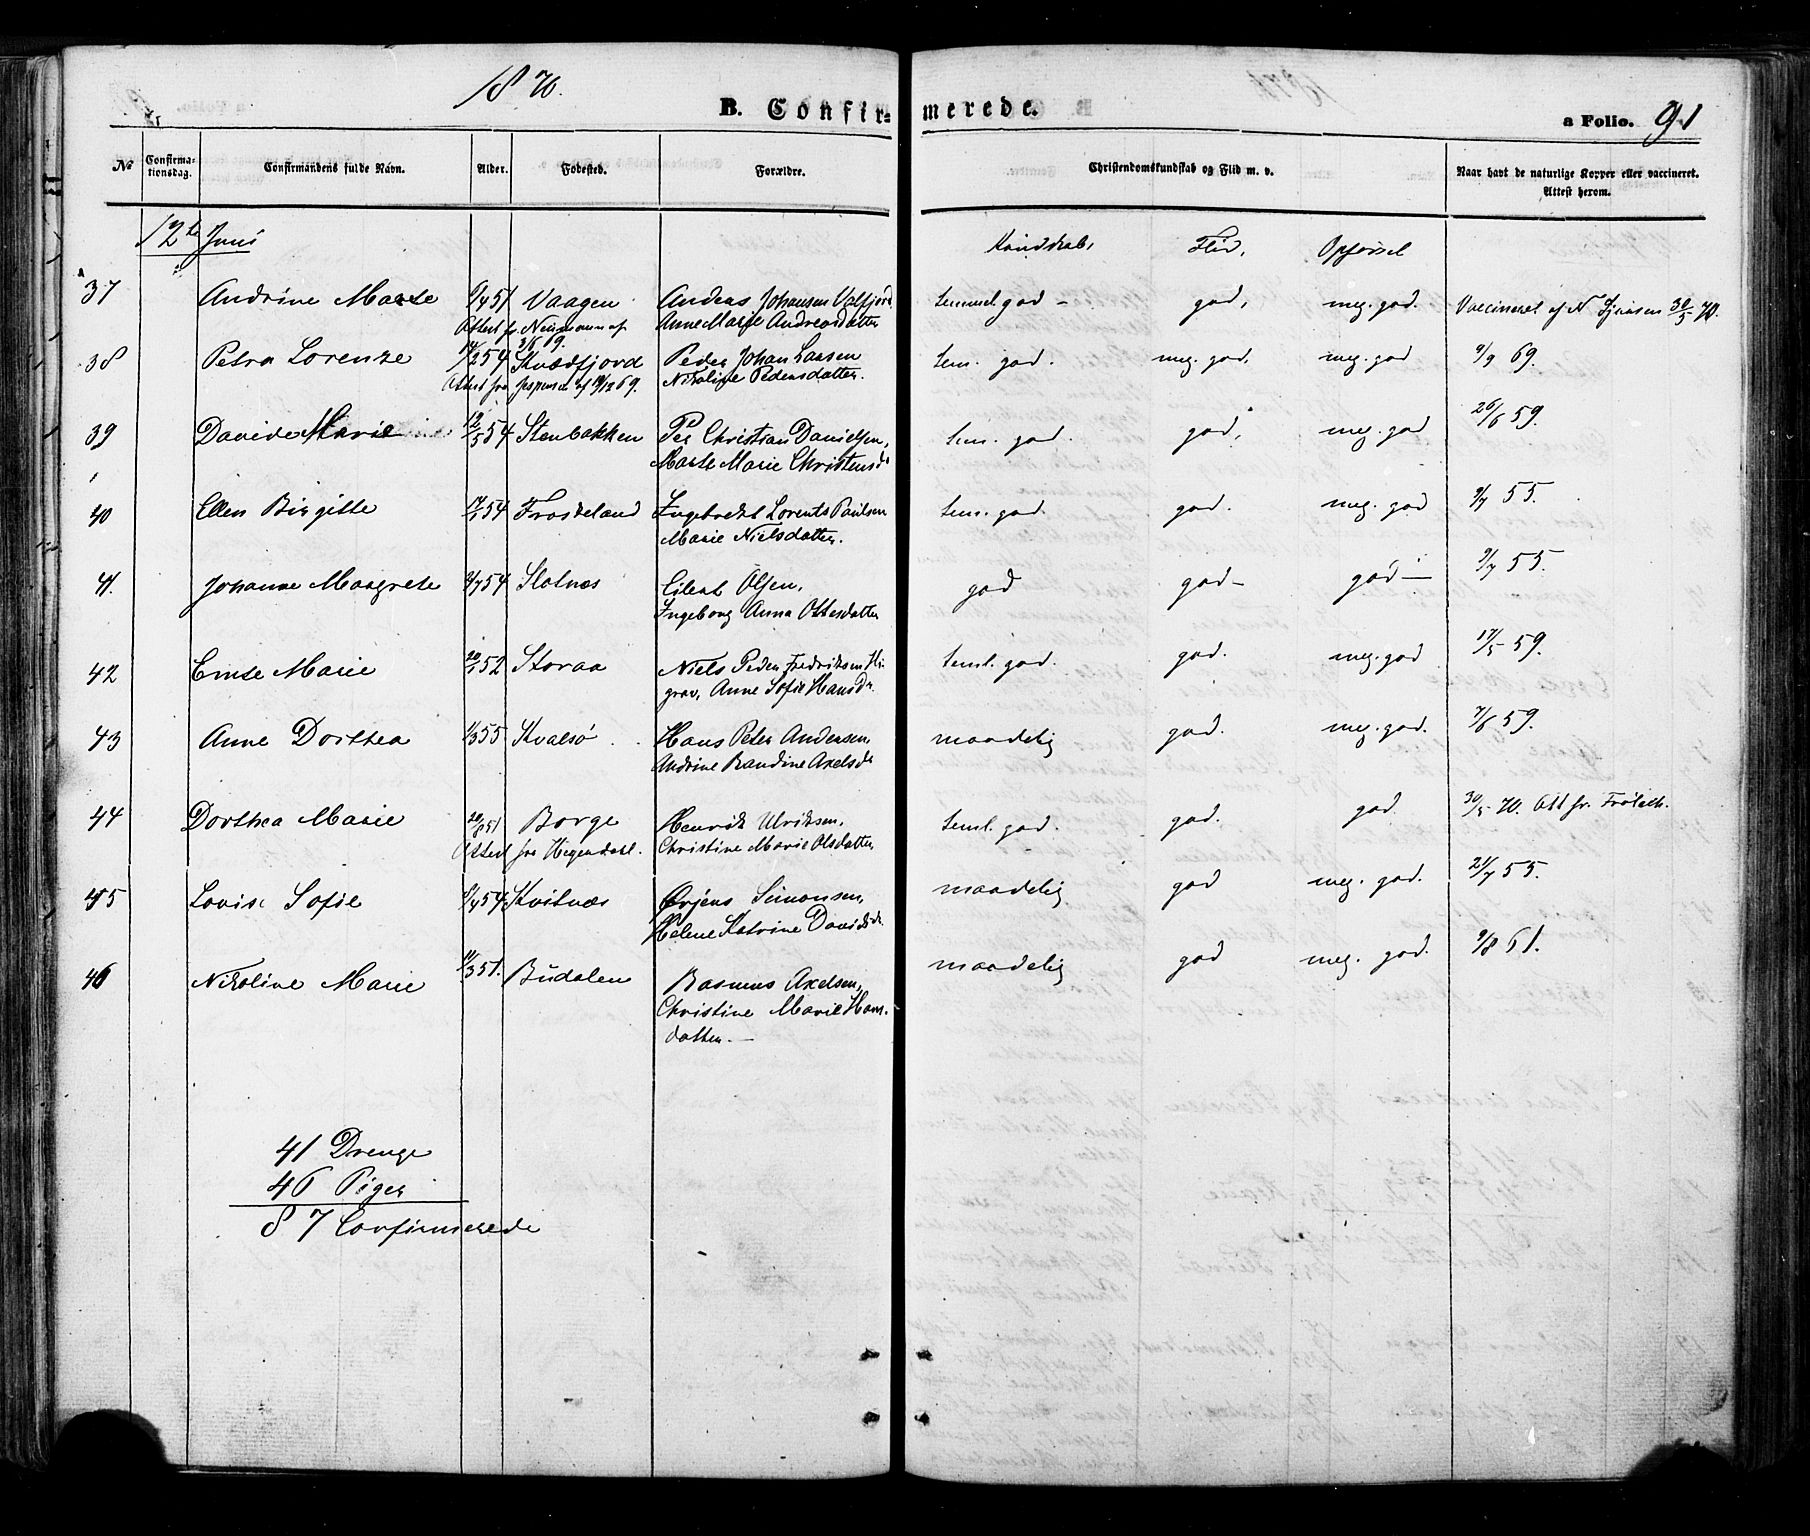 1870.
B. Confirmerede.
a Folio. 91
No Confirmationsdag. Confirmandens fulde Navn. Alder. Fødested. Forældre. Christendomskundskab og Flid m. v. Naar havt de naturlige Kopper eller vaccineret. Attest herom.
12te Juni Kundskab, Flid, Opførsel
37 Andrine Marte 9/4 51 Vaagen Anders Johansen Valfjord temmel. god - god, meg. god. Vaccineret af 30/5 70.
Attest fr. Neumann af Anne Marie Andreasdatter
3/6 69.
38 Petra Lorenze 14/2 54 Kvædfjord Peder Johan Laasen tem. god. meg. god, meg. god 9/9 69.
Attest fra Jespersen af 19/12 69. Nikoline Pedersdatter.
39 Davide Marie 12/5 54 Stenbakken Per Christian Danielsen, tem. god. god, meg. god 26/6 59.
Marte Marie Christensd.
40 Ellen Birgitte 17/1 54 Froskeland Ingebrekt Lorents Paulsen tem. god. god. meg. god 9/7 55.
Marie Nielsdatter.
41. Johanne Margrete 2/7 54 Slotnæs Eilert Olsen, god god- god- 9/7 55.
Ingeborg Anna Ottesdatter
42 Emse Marie 20/1 52 Storaa Niels Peder Fredriksen Hi- teml. god. god. meg. god 17/5 59.
grav, Anne Sofie Hansdr.
43 Anne Dorthea 1/3 55 Kvalsø Hans Peter Andersen maadelig god. meg. god. 7/6 59.
Andrine Randine Axelsdr
44 Dorthea Marie 20/8 51 Borge Henrik Ulriksen, teml. god. god. god. 30/5 70. Att fr.
Attest fra Hegendahl. Christine Marie Olsdatter
45 Lovise Sofie 8/4 54 Kvitnæs Ørjens Simonsen, maadelig god meg. god. 21/7 55.
Helene Katrine Davidsdr.
46 Nikoline Marie 11/3 51. Budalen Rasmus Axelsen, maadelig god meg. god. 9/8 61.
Christine Marie Hans-
datter. —
41 Drenge
46 Piger
87 Confirmerede